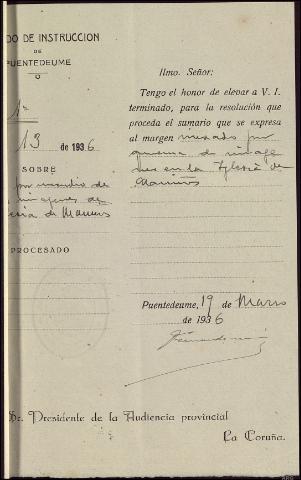 DO DE INSTRUCCION
DE
PUENTEDEUME
13 de 1936
SOBRE
por incendio de
imágenes de
PROCESADO
Ilmo. Señor:
Tengo el honor de elevar a V. I.
terminado, para la resolución que
proceda el sumario que se expresa
al margen por
quema de imáge
nes en la Iglesia de
Maniños
Puentedeume, 19 de Marzo
de 1936
Sr. Presidente de la Audiencia provincial
La Coruña.